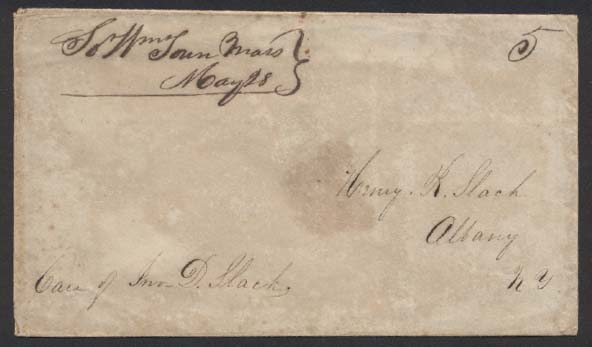 So Wms Town Mass
May 28
5
Henry. K. Slack
Albany
N Y
Care of Jno. D. Slack.